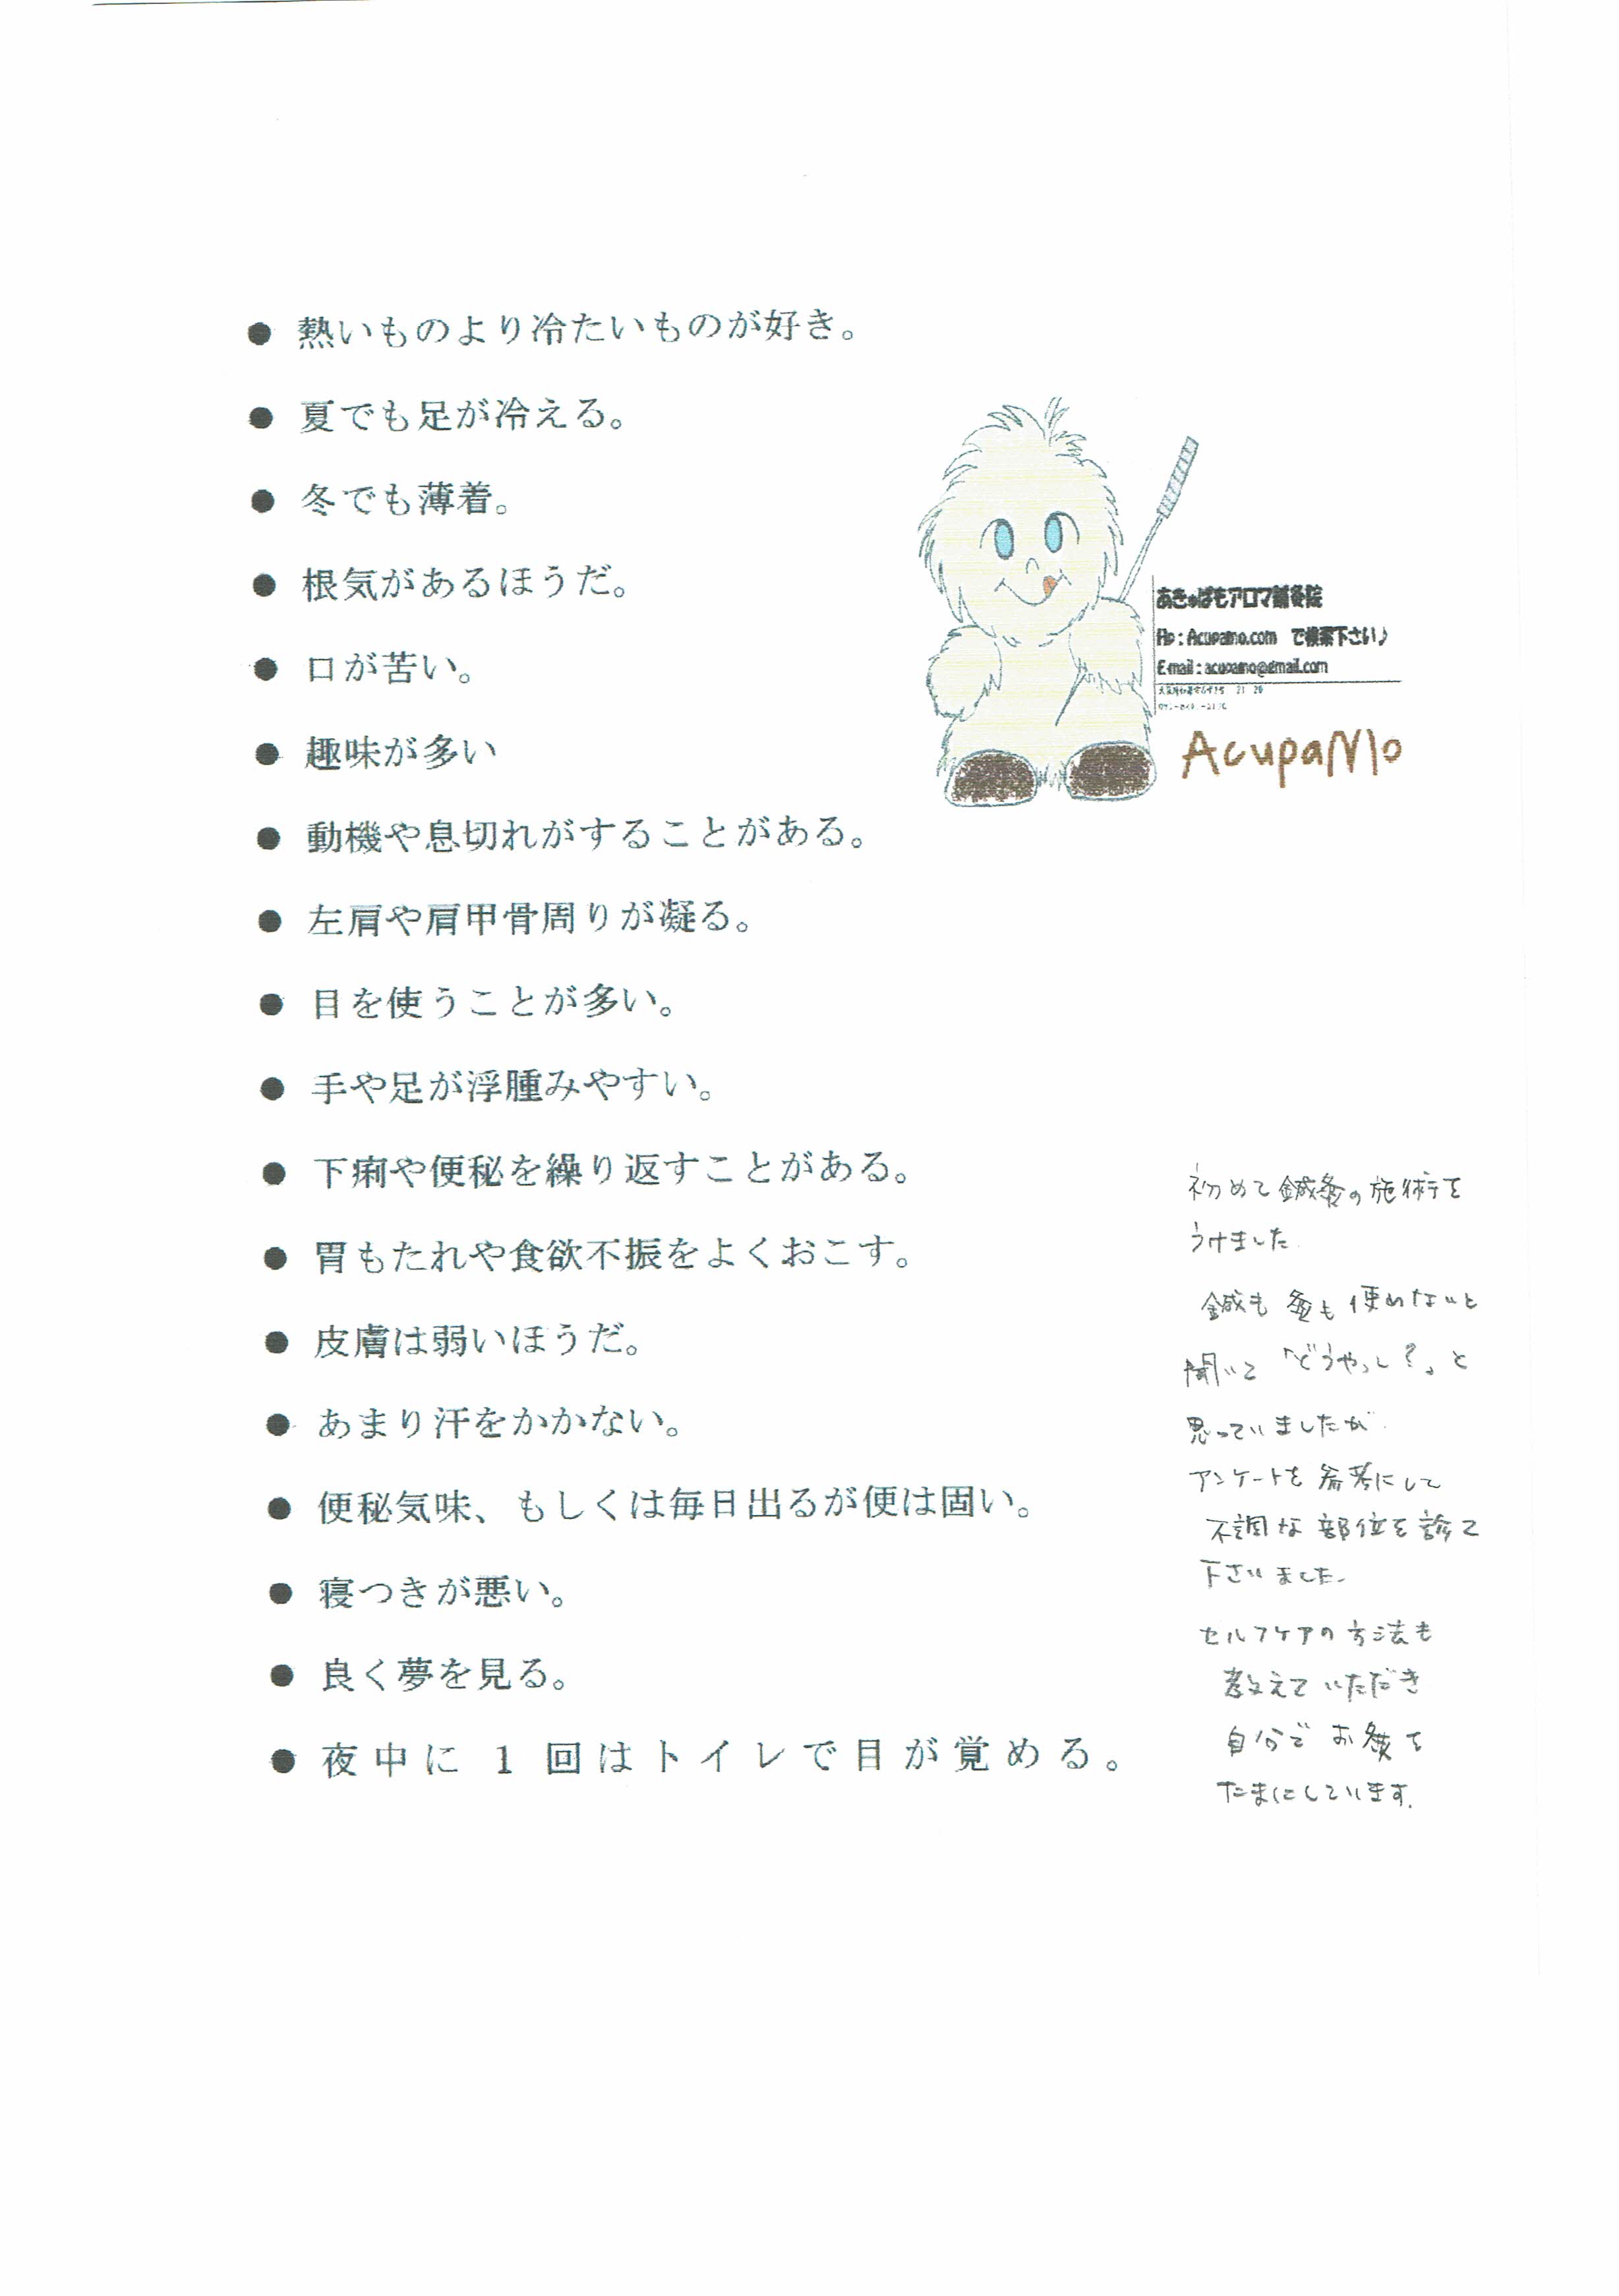 ● 熱いものより冷たいものが好き。
● 夏でも足が冷える。
● 冬でも薄着。
● 根気があるほうだ。
● 口が苦い。
● 趣味が多い
● 動機や息切れがすることがある。
● 左肩や肩甲骨周りが凝る。
● 目を使うことが多い。
● 手や足が浮腫みやすい。
● 下痢や便秘を繰り返すことがある。
● 胃もたれや食欲不振をよくおこす。
● 皮膚は弱いほうだ。
● あまり汗をかかない。
● 便秘気味、もしくは毎日出るが便は固い。
● 寝つきが悪い。
● 良く夢を見る。
● 夜中に 1 回はトイレで目が覚める。
あきゅぱもアロマ鍼灸院
Hp : Acupamo.com で検索下さい♪
E-mail : acupamo@gmail.com
AcupaMo
初めて鍼灸の施術を
うけました
鍼も灸も使めないと
聞いて「どうやって?」と
思っていましたが
アンケートを参考にして
不調な部位を診て
下さいました。
セルフケアの方法も
教えていただき
自分でお灸を
たまにしています。